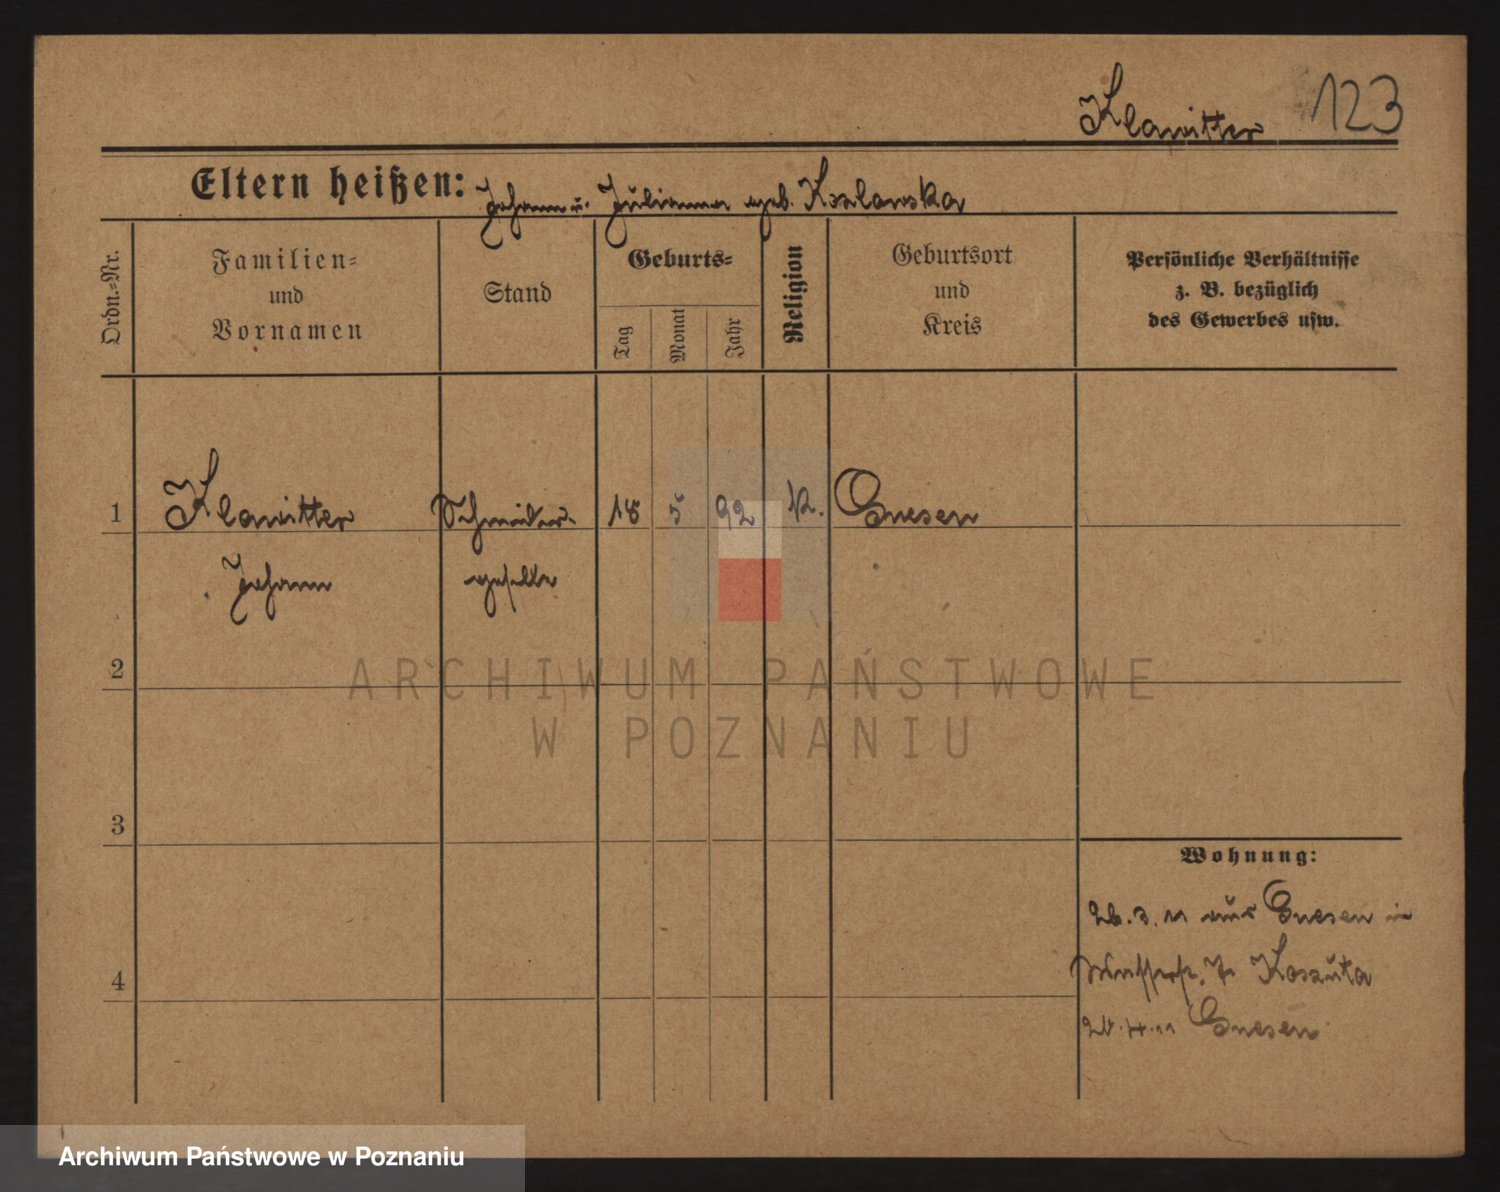 Klawitter 123
Eltern heißen: Johann u. Julianna geb. Kozlowska
Ordn.=Nr.
Familien=
und
Vornamen
Stand
Geburts=
Tag
Monat
Jahr
Religion
Geburtsort
und
Kreis
Persönliche Verhältnisse
z. B. bezüglich
des Gewerbes usw.
1 Klawitter Schneider- 18 5 92 k. Gnesen
Johann geselle
2
ARCHIWUM PAŃSTWOWE
W POZNANIU
3
Wohnung:
26. 3. 11 aus Gnesen in
7 Koszuta
4
11 Gnesen
Archiwum Państwowe w Poznaniu